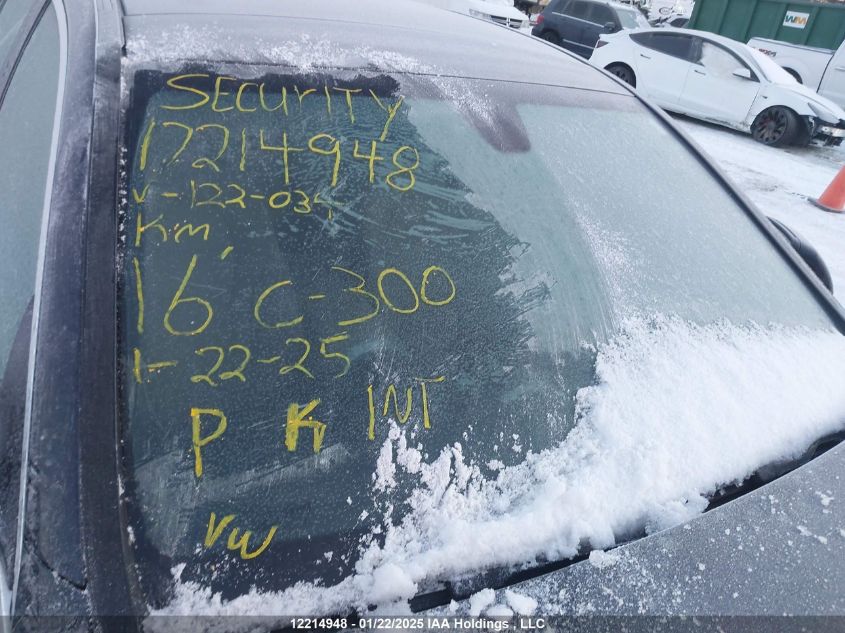 SECURITY
12214948
V-122-034
Km
16' C-300
1-22-25
P K INT
VW
WM
12214948 - 01/22/2025 IAA Holdings , LLC